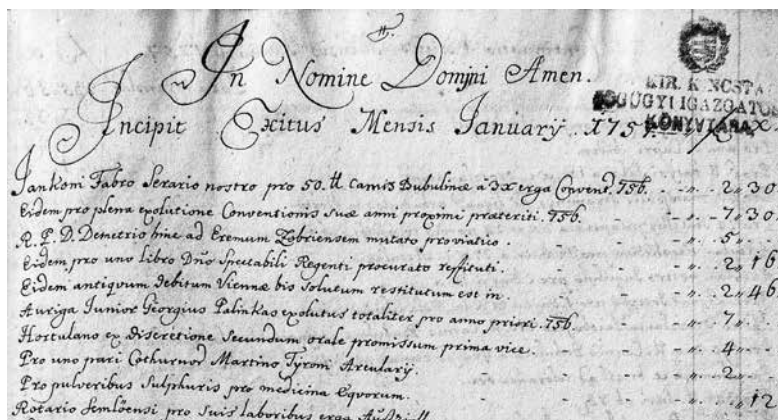 In Nomine Domini Amen.
KIR. KINCSTA
JOGÜGYI IGAZGATÓS
KÖNYVTÁRA
Incipit Exitus Mensis Januarij 1757. x
Jankoni Fabro Serario nostro pro 50. ℔ Carnis Bubulinæ â 3x erga Convent. 756. - " 2 " 30
Eidem pro plena exolutione Conventionis suæ anni proximi præteriti. 756. - " 7 " 30
R. P. D. Demetrio hinc ad Eremum Zobriensem mutato pro viatico. - " 5 "
Eidem pro uno libro Dno Spectabili Regenti procurato restituti. - " 2 " 16
Eidem antiquum debitum Viennæ bis solutum restitutum est in. - " 2 " 46
Auriga Junior Georgius Palinkas exolutus totaliter pro anno priori. 756. - " 7 "
Hortulano ex discretione Secundum orale promissum prima vice. - " 4 "
Pro uno pari Cothurnor Martino Tyroni Arculary. - " 2 "
Pro pulveribus Sulphuris pro medicina Equorum. - " " 12
Rotario Semlöensi pro Suis laboribus erga